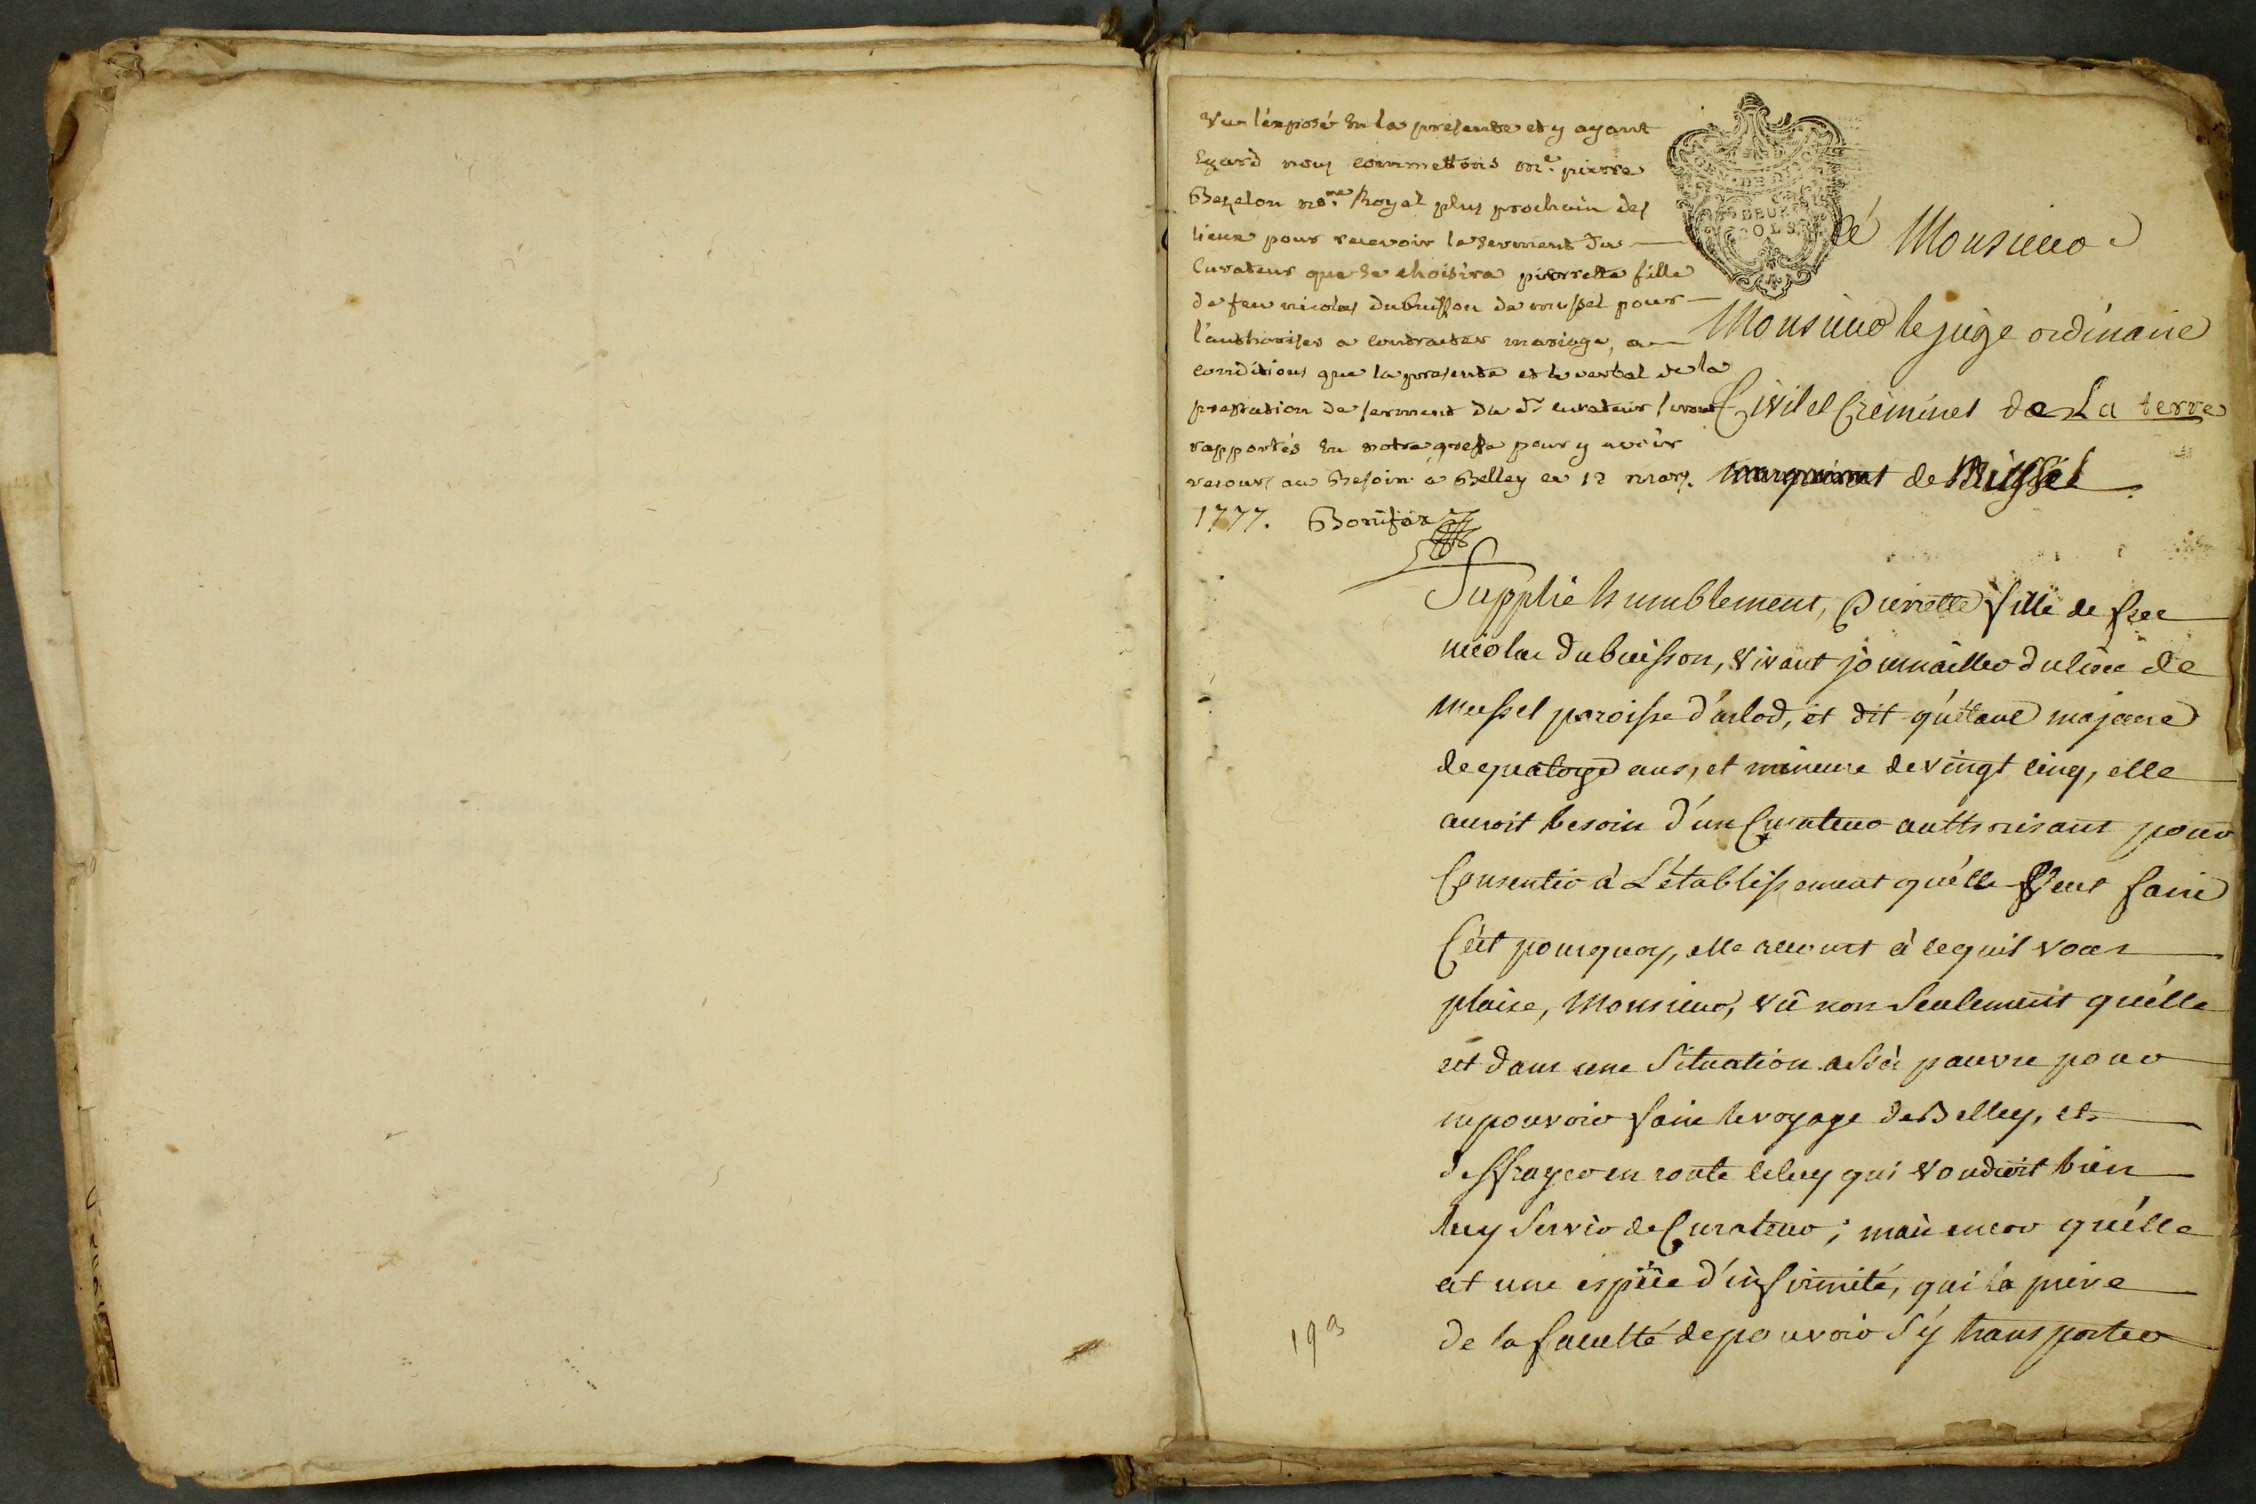 Vu l'éxposé En la presente et y ayant
Egard nous commettons me. pierre
Bezelon nore. Royal plus prochain des
lieux pour recevoir le serment du
Curateur que se choisira pierrette fille
de feu nicolas dubuisson de mussel pour
l'authoriser a contracter mariage, a
conditions que la presente et le verbal de la
prestation de serment du dt. curateur seront
rapportés En notre greffe pour y avoir
recours au Besoin à Belley ce 12 mars.
1777. Bonifax
DEUX
SOLS
à Monsieur
Monsieur le juge ordinaire
Civil et Criminel de La terre
de Mussel
Supplie humblement, Pierrette fille de feu
nicolas dubuisson, vivant journailler du lieu de
mussel paroisse d'arlod, et dit qu'étant majeure
de quatorze ans, et mineure de vingt cinq, elle
auroit besoin d'un Curateur authorisant pour
Consentir à L'établissement qu'elle veut faire
C'est pourquoy, elle accourt à ce qu'il vous
plaise, Monsieur, vû non seulement qu'elle
est dans une Situation assés pauvre pour
ne pouvoir faire le voyage de Belley, et
deffrayer en route celuy qui voudroit bien
luy Servir de Curateur; mais encor qu'elle
at une espèce d'infirmité, qui la prive
de la faculté de pouvoir S'y transporter
19